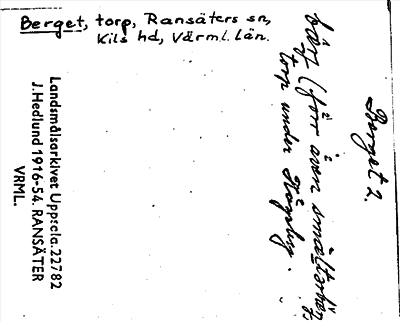 Berget, torp, Ransäters sn,
Kils hd, Värml. län.
Landsmålsarkivet Uppsala. 22782
J. Hedlund 1916-54. RANSÄTER
VRML.
Berget 2.
(förr även
torp under